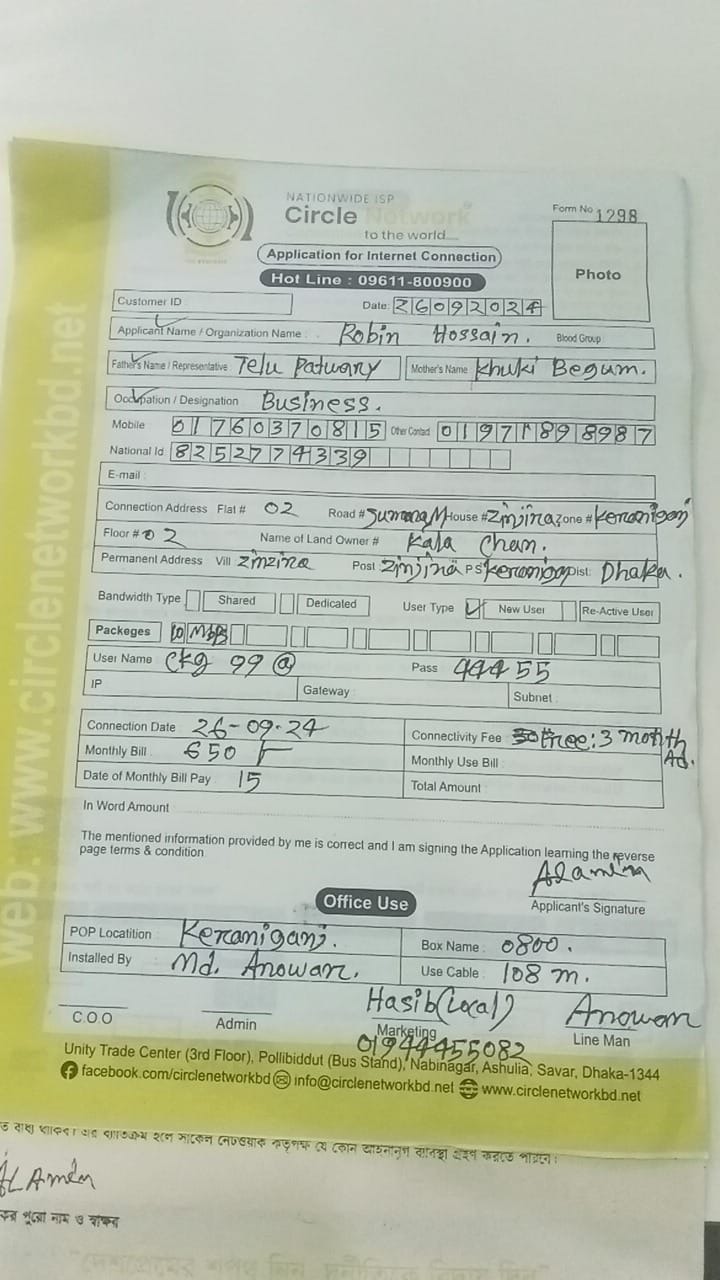 web: www.circlenetworkbd.net
NATIONWIDE ISP
Circle Network
to the world....
Form No 1298
Application for Internet Connection
Hot Line : 09611-800900
Photo
Customer ID
Date: 26092024
Applicant Name / Organization Name : Robin Hossain. Blood Group
Father's Name / Representative Telu Patwary Mother's Name Khuki Begum.
Occupation / Designation Business.
Mobile 01760370815 Other Contact 01971898987
National Id 8252774339
E-mail :
Connection Address Flat # 02 Road # House # Zinjira Zone # Keranigonj
Floor # 02 Name of Land Owner # Kala Chan.
Permanent Address Vill Zinzira Post Zinjira PS Dist: Dhaka.
Bandwidth Type Shared Dedicated User Type New User Re-Active User
Packeges 10 Mbps
User Name ckg 99 @ Pass 44455
IP Gateway Subnet
Connection Date 26-09-24 Connectivity Fee free: 3 month Ad.
Monthly Bill 650 Monthly Use Bill
Date of Monthly Bill Pay 15 Total Amount
In Word Amount
The mentioned information provided by me is correct and I am signing the Application learning the reverse
page terms & condition
Alamin
Applicant's Signature
Office Use
POP Locatition Keraniganj. Box Name : 0800.
Installed By Md. Anowar. Use Cable : 108 m.
Hasib(Local) Anowar
C.O.O Admin Marketing Line Man
01944455082
Unity Trade Center (3rd Floor), Pollibiddut (Bus Stand), Nabinagar, Ashulia, Savar, Dhaka-1344
facebook.com/circlenetworkbd info@circlenetworkbd.net www.circlenetworkbd.net
ব্যতিক্রম হলে সার্কেল নেটওয়ার্ক কতৃপক্ষ যে কোন আইনানুগ ব্যবস্থা গ্রহণ করতে পারবে।
AL Amin
পুরো নাম ও স্বাক্ষর